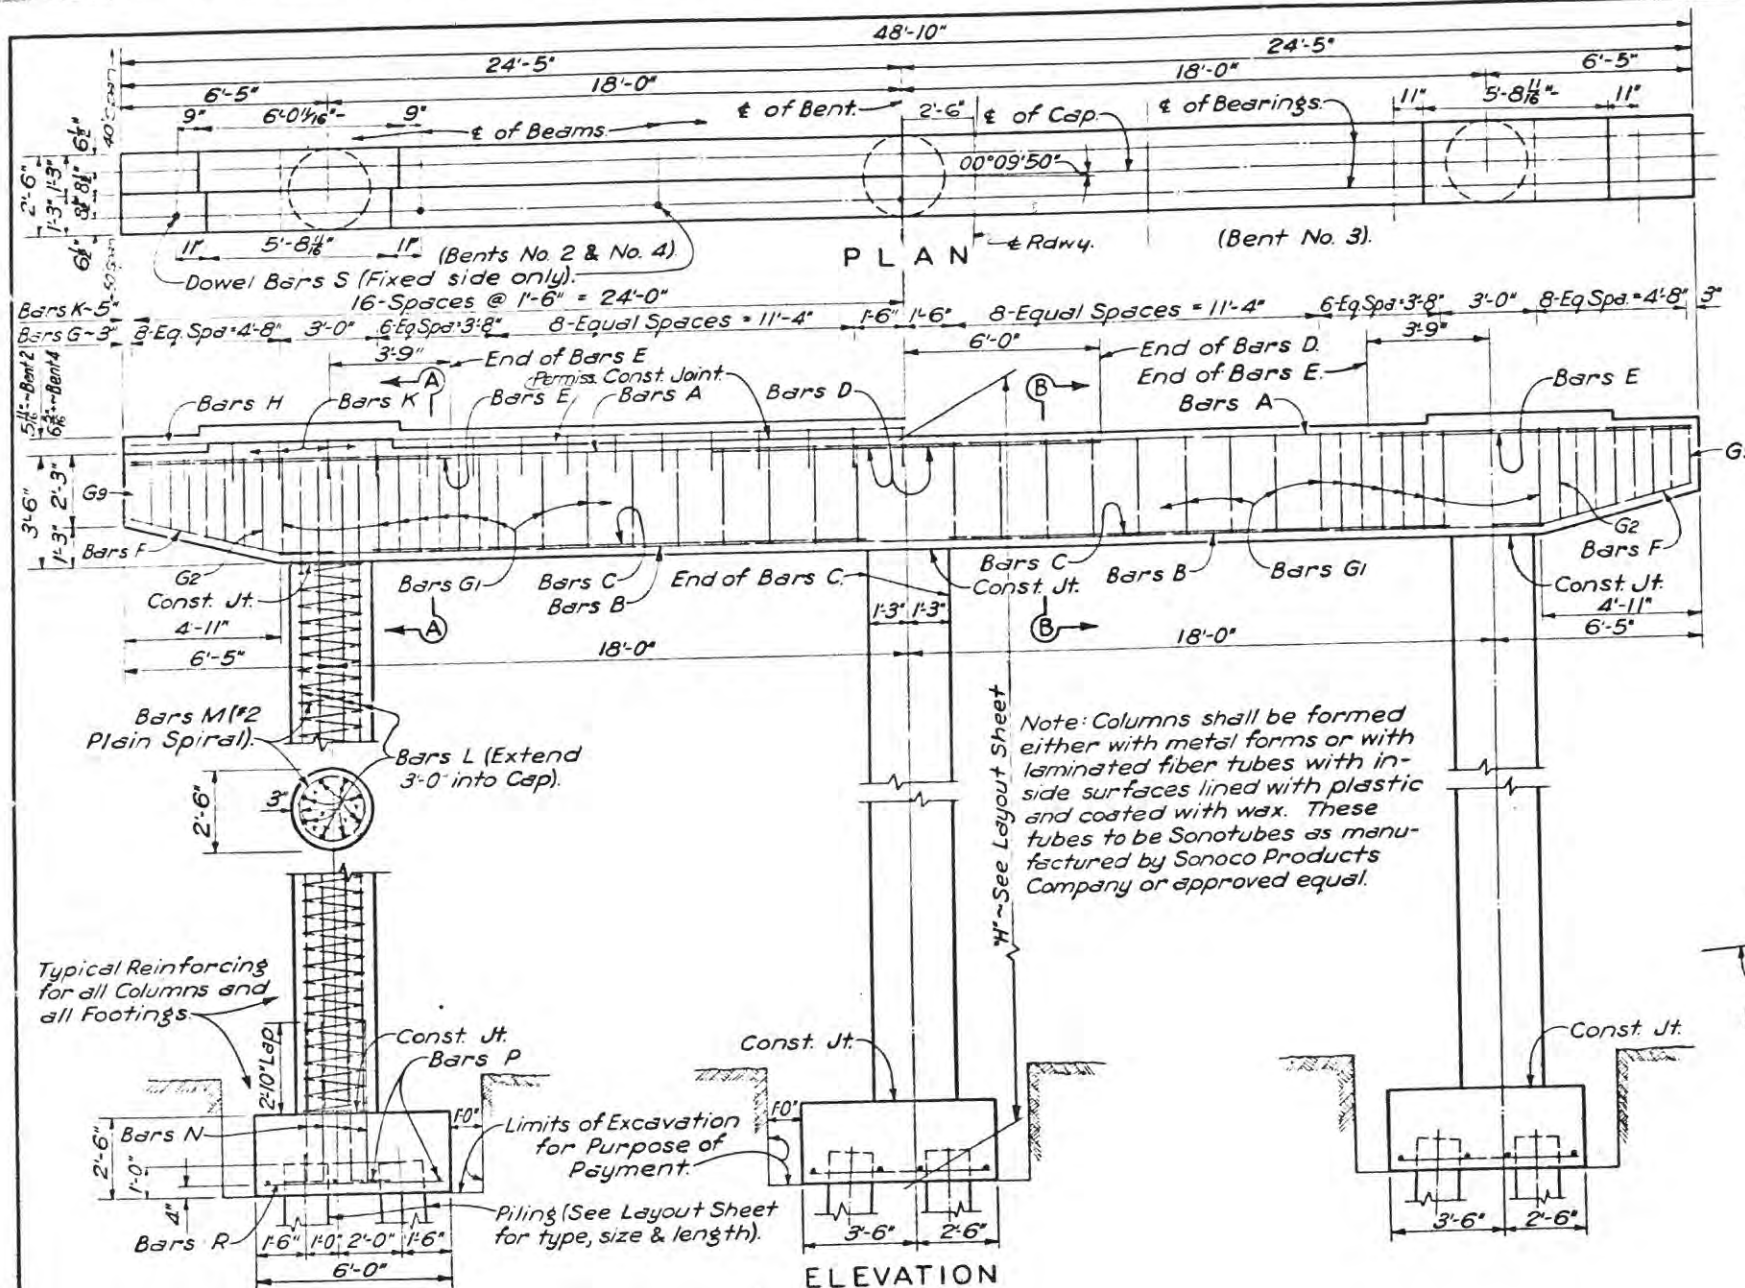 48'-10"
24'-5" 24'-5"
6'-5" 18'-0" 18'-0" 6'-5"
9" 6'-0 1/16"- 9" ℄ of Beams. ℄ of Bent. 2'-6" ℄ of Cap. ℄ of Bearings. 11" 5'-8 11/16"- 11"
6½" 40' Span
2'-6" 1'-3" 1'-3" 8½" 8½"
00°09'50"
6½" 50' Span
11" 5'-8 11/16" 11" (Bents No. 2 & No. 4).
PLAN
℄ Rdwy.
(Bent No. 3).
Dowel Bars S (Fixed side only).
Bars K~5" 16-Spaces @ 1'-6" = 24'-0"
Bars G~3" 8-Eq. Spa.=4'-8" 3'-0" 6-Eq Spa.=3'-8" 8-Equal Spaces = 11'-4" 1'-6" 1'-6" 8-Equal Spaces = 11'-4" 6-Eq.Spa.=3'-8" 3'-0" 8-Eq Spa.=4'-8" 3"
3'-9" End of Bars E 6'-0" End of Bars D. 3'-9"
Permiss. Const. Joint. End of Bars E.
Bars H Bars K A Bars E Bars A Bars D B Bars A Bars E
3'-6" 2'-3" 1'-3"
G9
Bars F G2 Bars G1 Bars C Bars B End of Bars C. Bars C Const. Jt. Bars B Bars G1 G2 Bars F
Const. Jt. Const. Jt.
A 1'-3" 1'-3" B
4'-11" 4'-11"
6'-5" 18'-0" 18'-0" 6'-5"
Bars M (#2
Plain Spiral).
Bars L (Extend
3'-0" into Cap).
2'-6" 3"
"H"~See Layout Sheet
Note: Columns shall be formed
either with metal forms or with
laminated fiber tubes with in-
side surfaces lined with plastic
and coated with wax. These
tubes to be Sonotubes as manu-
factured by Sonoco Products
Company or approved equal.
Typical Reinforcing
for all Columns and
all Footings.
2'-10" Lap
Const. Jt.
Bars P
Const. Jt.
Const. Jt.
Bars N
2'-6" 1'-0" 4"
1'-0" 1'-0"
Limits of Excavation
for Purpose of
Payment.
Bars R
Piling (See Layout Sheet
for type, size & length).
1'-6" 1'-0" 2'-0" 1'-6" 3'-6" 2'-6" 3'-6" 2'-6"
6'-0"
ELEVATION